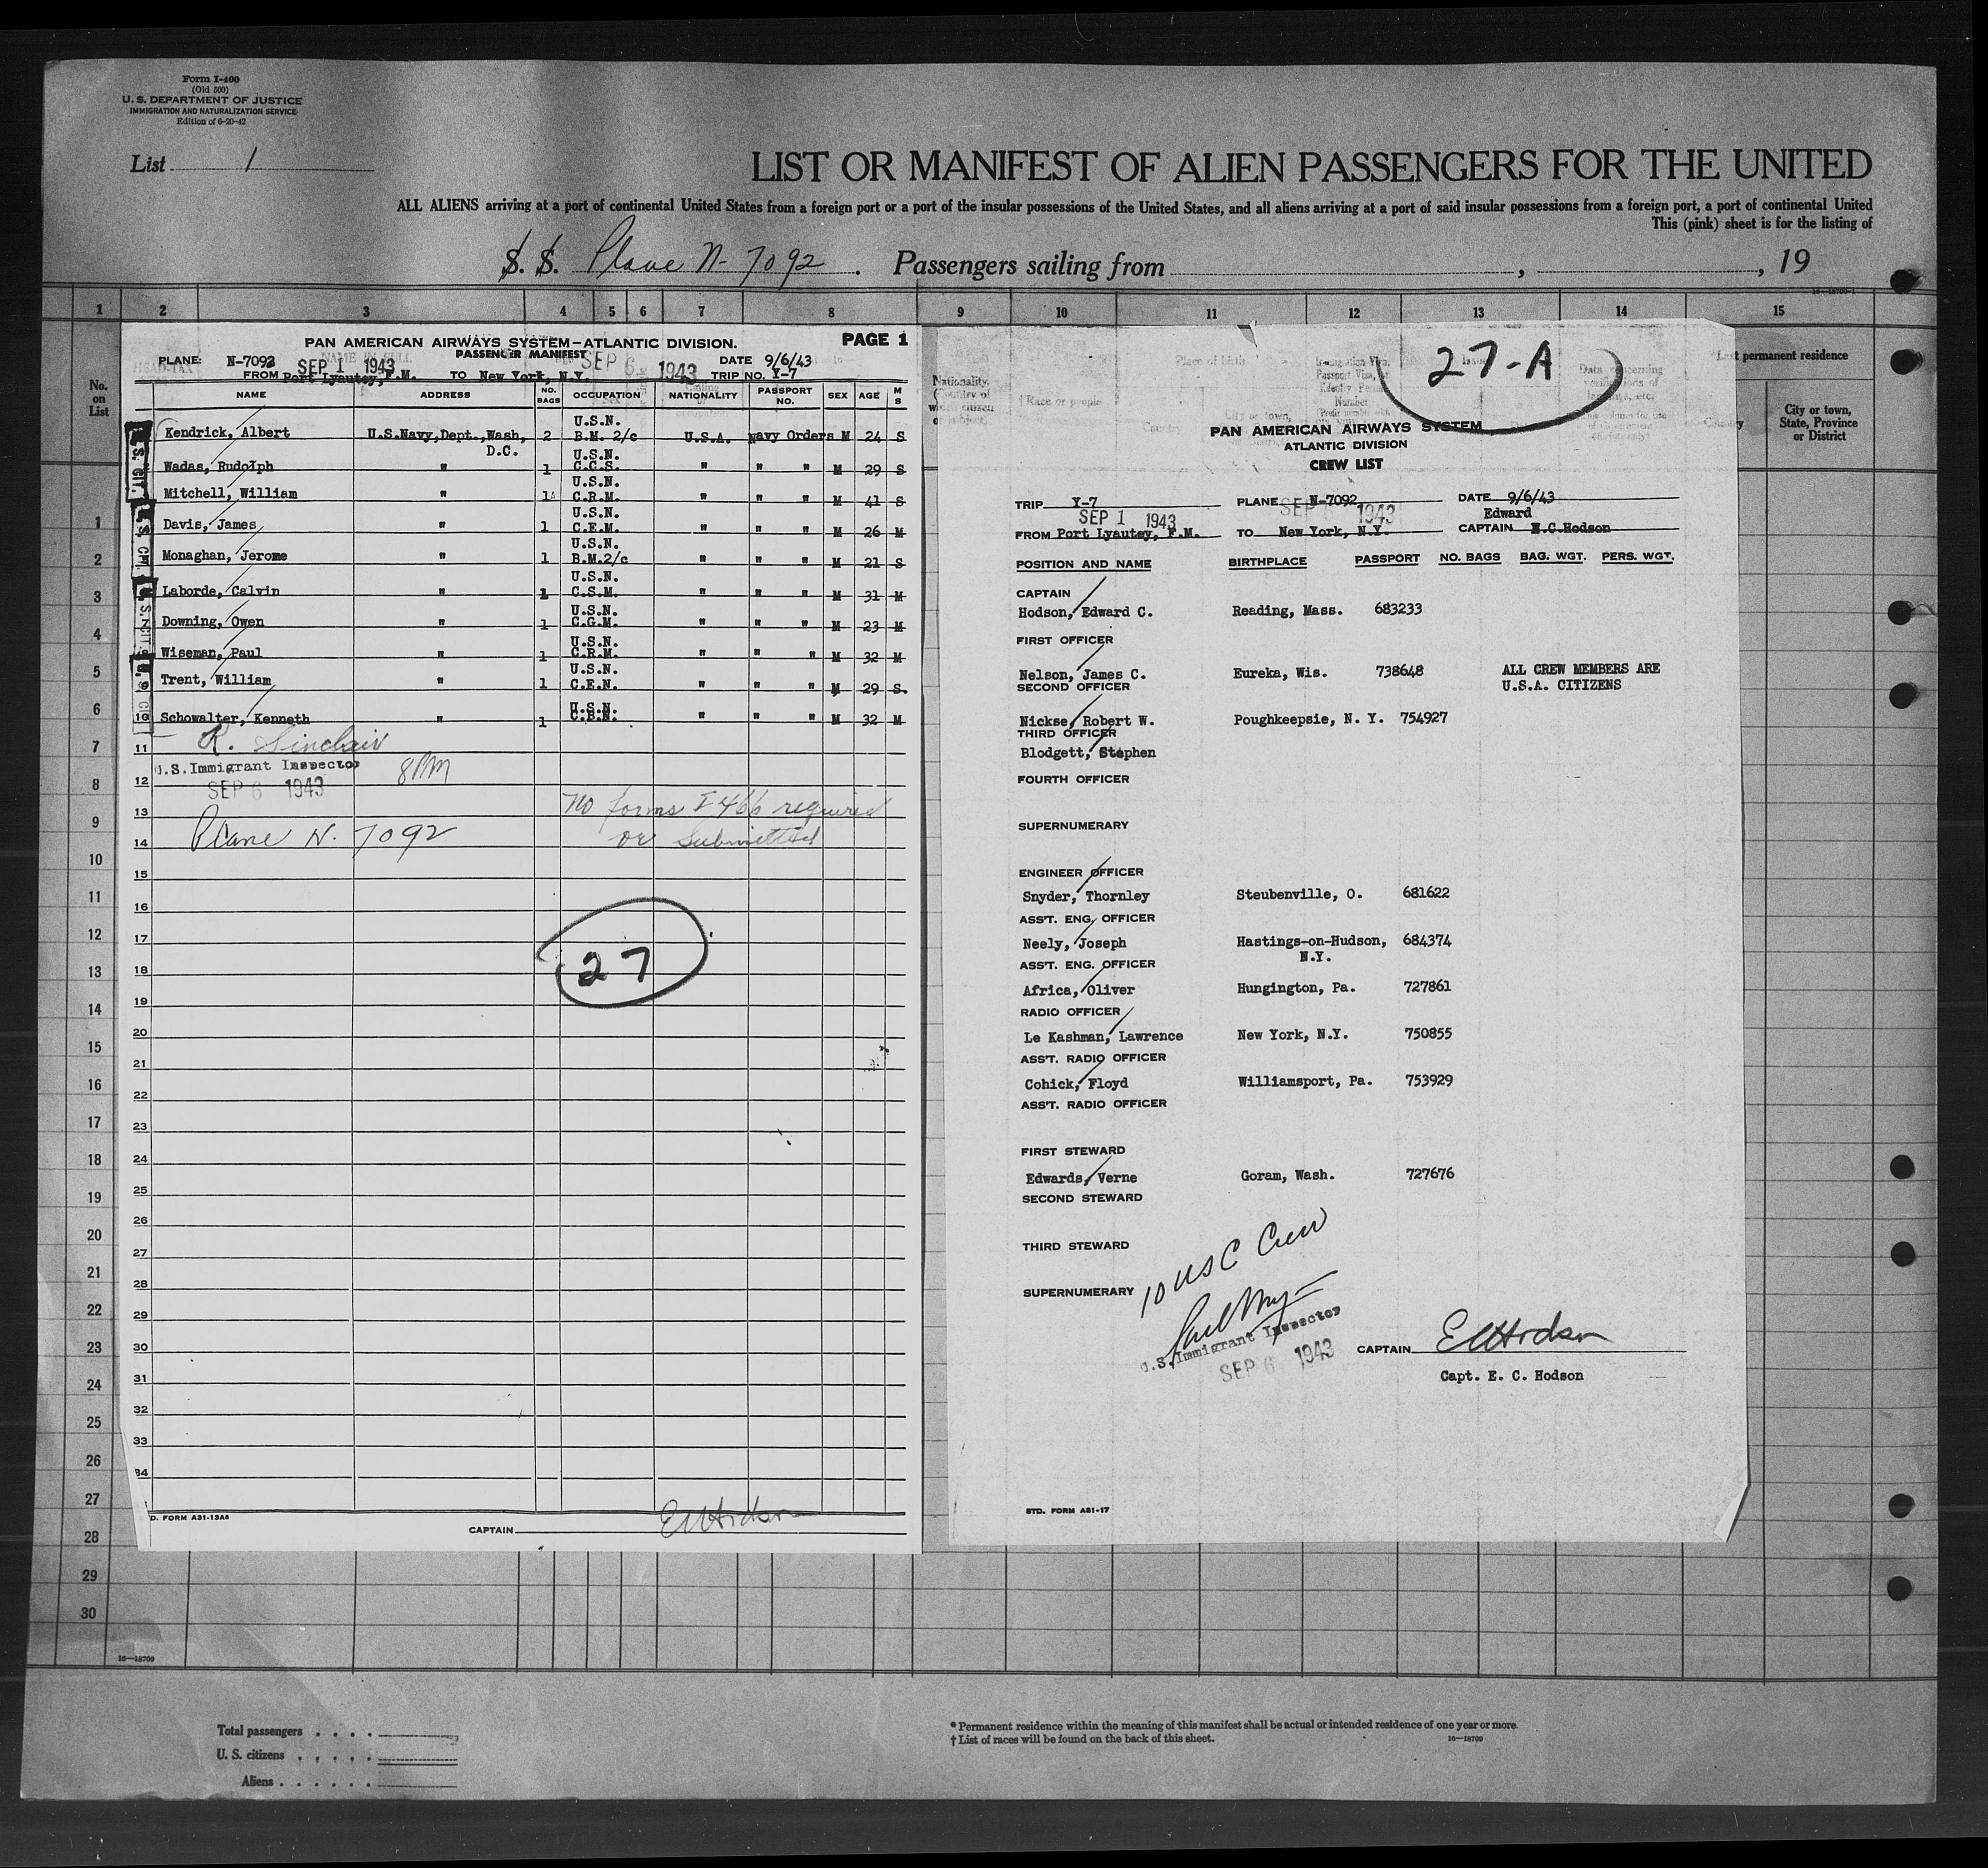 Form I-400
(Old 500)
U. S. DEPARTMENT OF JUSTICE
IMMIGRATION AND NATURALIZATION SERVICE
Edition of 6-20-42
List 1
LIST OR MANIFEST OF ALIEN PASSENGERS FOR THE UNITED
ALL ALIENS arriving at a port of continental United States from a foreign port or a port of the insular possessions of the United States, and all aliens arriving at a port of said insular possessions from a foreign port, a port of continental United
This (pink) sheet is for the listing of
S. S. Plane N- 7092 . Passengers sailing from , , 19
1 2 3 4 5 6 7 8 9 10 11 12 13 14 15
No. on List
PAN AMERICAN AIRWAYS SYSTEM—ATLANTIC DIVISION. PAGE 1
PASSENGER MANIFEST
PLANE: N-7092 SEP 1 1943 SEP 6 1943 DATE 9/6/43
FROM Port Lyautey, F.M. TO New York, N.Y. TRIP NO. Y-7
NAME ADDRESS NO. BAGS OCCUPATION NATIONALITY PASSPORT NO. SEX AGE M S
Kendrick, Albert U.S.Navy,Dept.,Wash, D.C. 2 U.S.N. B.M. 2/c U.S.A. Navy Orders M 24 S
Wadas, Rudolph " 1 U.S.N. C.C.S. " " " M 29 S
Mitchell, William " 1 U.S.N. C.R.M. " " " M 41 S
Davis, James " 1 U.S.N. C.E.M. " " " M 26 M
Monaghan, Jerome " 1 U.S.N. B.M.2/c " " " M 21 S
Laborde, Calvin " 1 U.S.N. C.S.M. " " " M 31 M
Downing, Owen " 1 U.S.N. C.G.M. " " " M 23 M
Wiseman, Paul " 1 U.S.N. C.R.M. " " " M 32 M
Trent, William " 1 U.S.N. C.E.N. " " " M 29 S.
10 Schowalter, Kenneth " 1 U.S.N. C.B.N. " " " M 32 M
11 R. Sinclair
U.S.Immigrant Inspector 8PM
12 SEP 6 1943
13 No forms I 466 required
or submitted
14 Plane N. 7092
15
16
17
18
27
19
20
21
22
23
24
25
26
27
28
29
30
31
32
33
34
D. FORM A31-13A8
CAPTAIN E C Hodson
27-A
Last permanent residence
City or town, State, Province or District
PAN AMERICAN AIRWAYS SYSTEM
ATLANTIC DIVISION
CREW LIST
TRIP Y-7 PLANE N-7092 DATE 9/6/43
SEP 1 1943 SEP 6 1943 Edward
FROM Port Lyautey, F.M. TO New York, N.Y. CAPTAIN E.C.Hodson
POSITION AND NAME BIRTHPLACE PASSPORT NO. BAGS BAG. WGT. PERS. WGT.
CAPTAIN
Hodson, Edward C. Reading, Mass. 683233
FIRST OFFICER
Nelson, James C. Eureka, Wis. 738648 ALL CREW MEMBERS ARE
U.S.A. CITIZENS
SECOND OFFICER
Nickse, Robert W. Poughkeepsie, N. Y. 754927
THIRD OFFICER
Blodgett, Stephen
FOURTH OFFICER
SUPERNUMERARY
ENGINEER OFFICER
Snyder, Thornley Steubenville, O. 681622
ASS'T. ENG. OFFICER
Neely, Joseph Hastings-on-Hudson, N.Y. 684374
ASS'T. ENG. OFFICER
Africa, Oliver Hungington, Pa. 727861
RADIO OFFICER
Le Kashman, Lawrence New York, N.Y. 750855
ASS'T. RADIO OFFICER
Cohick, Floyd Williamsport, Pa. 753929
ASS'T. RADIO OFFICER
FIRST STEWARD
Edwards, Verne Goram, Wash. 727676
SECOND STEWARD
THIRD STEWARD
SUPERNUMERARY
10 USC Crew
U.S.Immigrant Inspector
SEP 6 1943
CAPTAIN E C Hodson
Capt. E. C. Hodson
STD. FORM A31-17
1
2
3
4
5
6
7
8
9
10
11
12
13
14
15
16
17
18
19
20
21
22
23
24
25
26
27
28
29
30
16—18709
Total passengers
U. S. citizens
Aliens
* Permanent residence within the meaning of this manifest shall be actual or intended residence of one year or more.
† List of races will be found on the back of this sheet. 16—18709